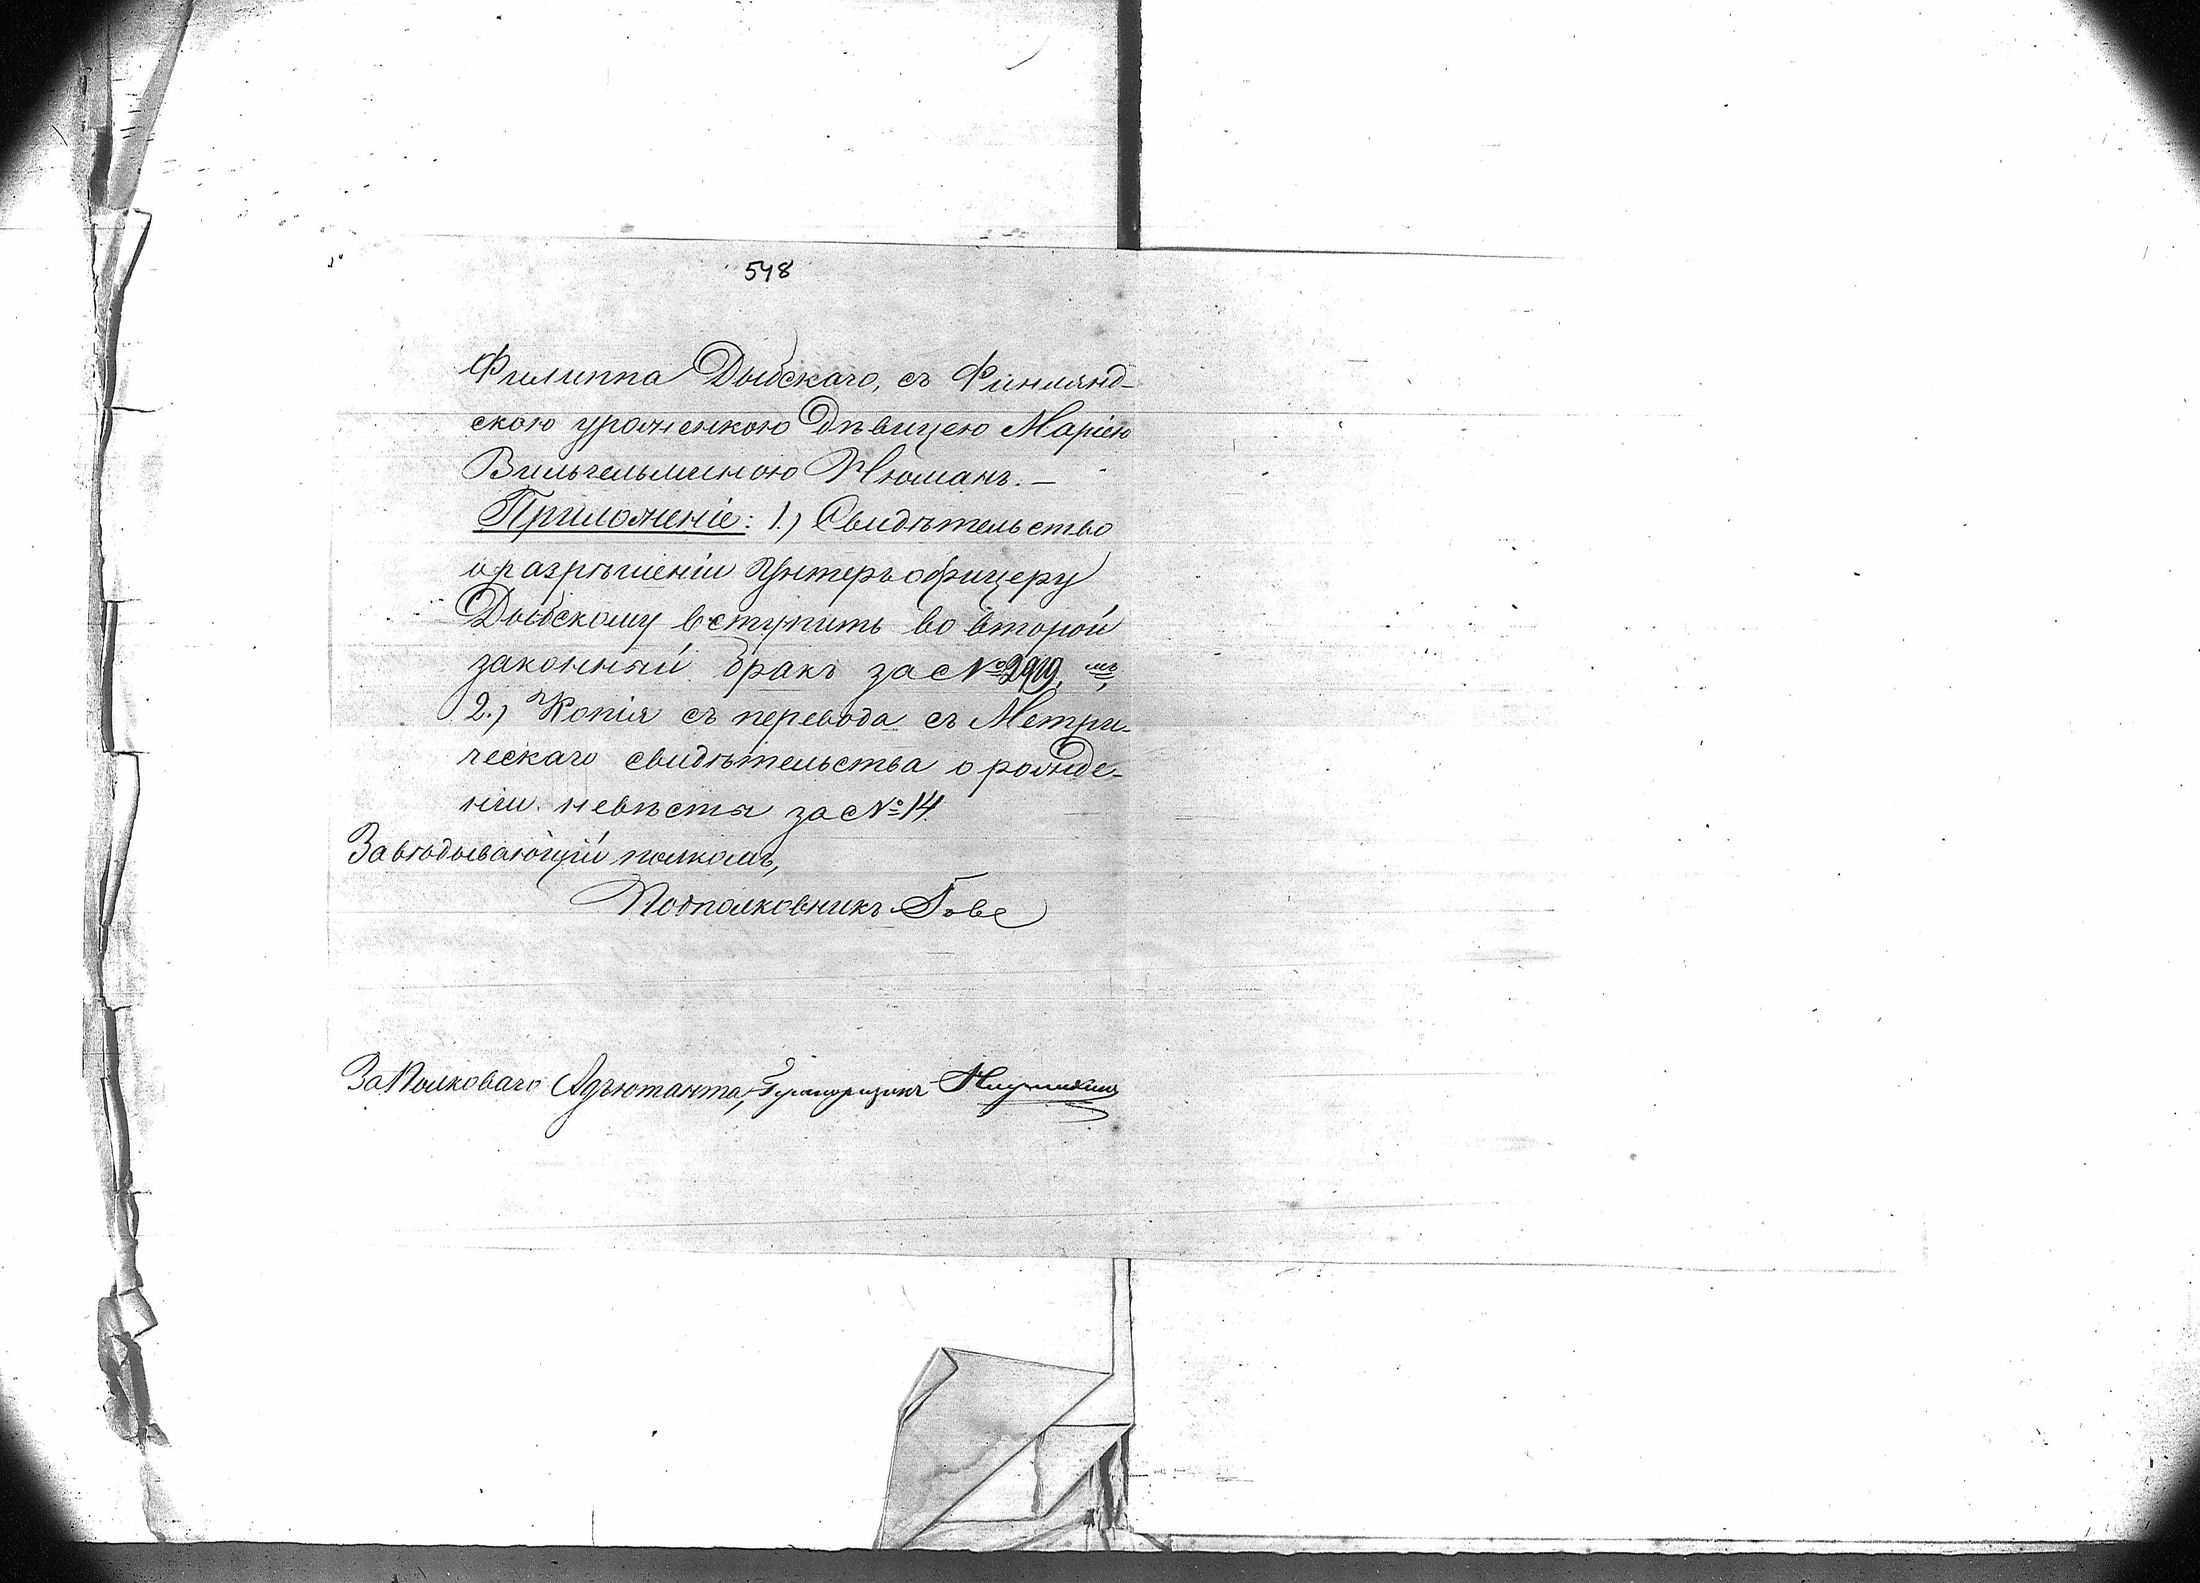 548
Филиппа Дыбскаго, съ Финлянд-
скою уроженкою Дѣвицею Маріею
Вильгельминою Нюманъ. —
Приложеніе: 1.) Свидѣтельство
о разрѣшеніи Унтеръ офицеру
Дыбскому вступить во второй
законный бракъ за №
2.) Копія съ перевода съ Метри-
ческаго свидѣтельства о рожде-
ніи невѣсты за № 14.
Завѣдывающій полкомъ,
Подполковникъ
За Полковаго Адъютанта,